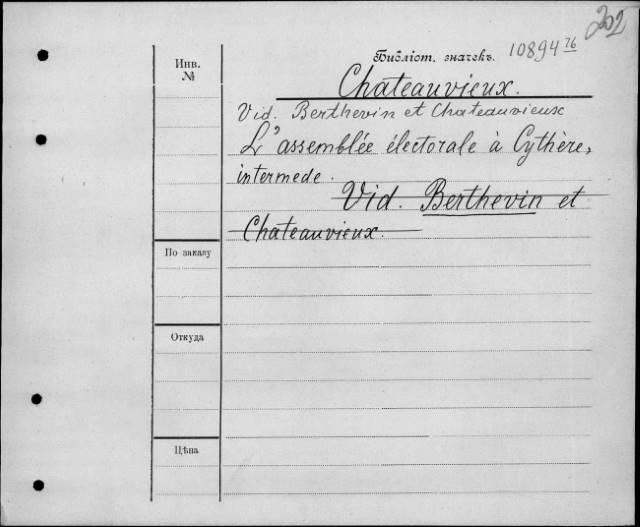 202
Инв. №
Библіот. значекъ. 10894 76
Chateauvieux.
Vid. Berthevin et Chateauvieux
L'assemblée électorale à Cythère,
intermede.
Vid. Berthevin et
Chateauvieux.
По заказу
Откуда
Цѣна